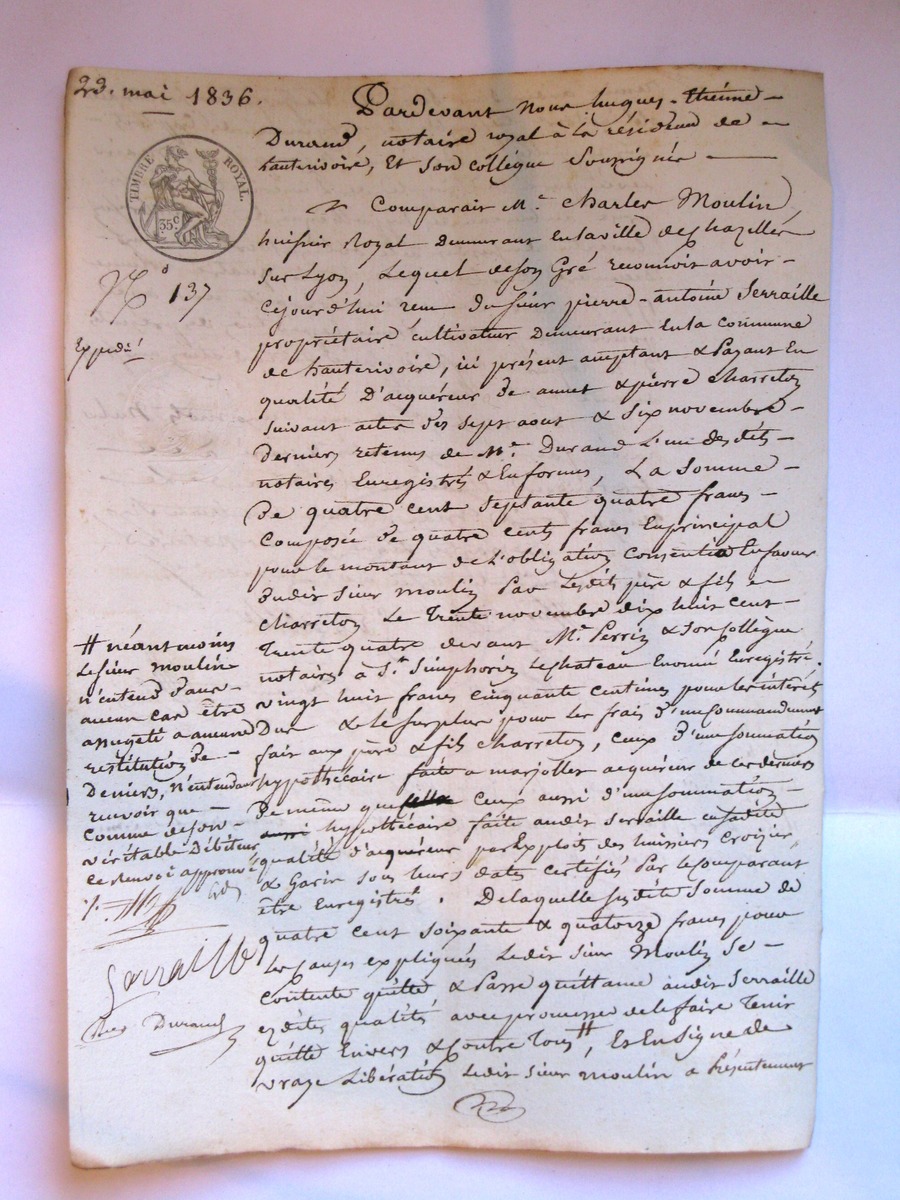 23. mai 1836.
Pardevant Nous hugues-Etienne
Durand, notaire royal à la résidence de
hauterivoire, Et son collègue Soussignés
TIMBRE ROYAL.
35 c
Comparait Me. Charles Moulin,
huissier Royal demeurant en la ville de chazelles
sur Lyon, Lequel de son Gré reconnoit avoir
N.o 137
cejourd'hui reçu du sieur pierre-antoine Serraille
propriétaire cultivateur Demeurant En la commune
Expedié
de hauterivoire, ici présent acceptant & Payant En
qualité D'acquéreur De annet & pierre charreton
suivant actes des sept aout & six novembre
Derniers retenus de Me. Durand L'un desdits
notaires Enregistrés & En formes, La Somme
De quatre cent septante quatre francs
Composée De quatre cents francs En principal
pour le montant de L'obligation Consentie En faveur
dudit sieur moulin Par Lesdits père & fils
charreton Le Trente novembre dix huit cent
Trente quatre devant Me. Perrin & son collègue
notaires à St. Simphorien Le chateau Enregistré.
vingt huit francs cinquante centimes pour les intérêts
Dus & le surplus pour les frais D'un Commandement
fait aux père & fils Charreton, ceux D'une sommation
hypothécaire faite a marjollet acquéreur de ces derniers
De même que ceux aussi d'une sommation
hypothécaire faite audit Serraille en sadite
qualité d'acquéreur par Exploits des huissiers Croizier
& Garin sous leurs dates certifiés Par le comparant
être Enregistrés. De laquelle susdite Somme de
quatre cent soixante & quatorze francs pour
les causes expliquées Ledit sieur Moulin se
Contente quitte & Passe quittance audit Serraille
esdites qualités avec promesse de le faire Tenir
quitte Envers & Contre Tous #, Et En Signe de
vraye Libération Ledit sieur moulin a Présentement
# néantmoins
Le sieur moulin
n'entend Dans
aucun cas être
assujeté a aucune
restitution de
Deniers, n'entendant
recevoir que
comme de son
véritable Débiteur
ce Renvoi approuvé
Serraille
Durand